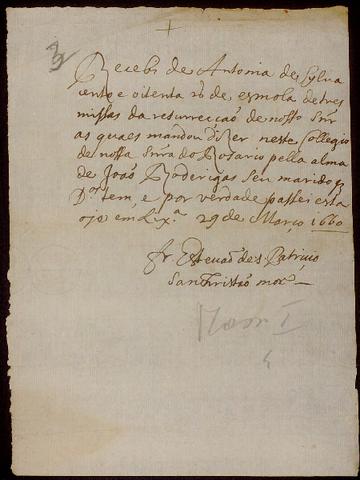 3
Recebi de Antonia de Sylva
cento e oitenta rs de esmola de tres
missas da resurrecção de nosso Snr
as quaes mandou dizer neste Collegio
de nossa Snra do Rosario pella alma
de João Roderigas seu marido q
Ds tem, e por verdade passei esta
oje em Lixa 29 de Março 1660
fr. Estevão de S Patricio
San Christão mor